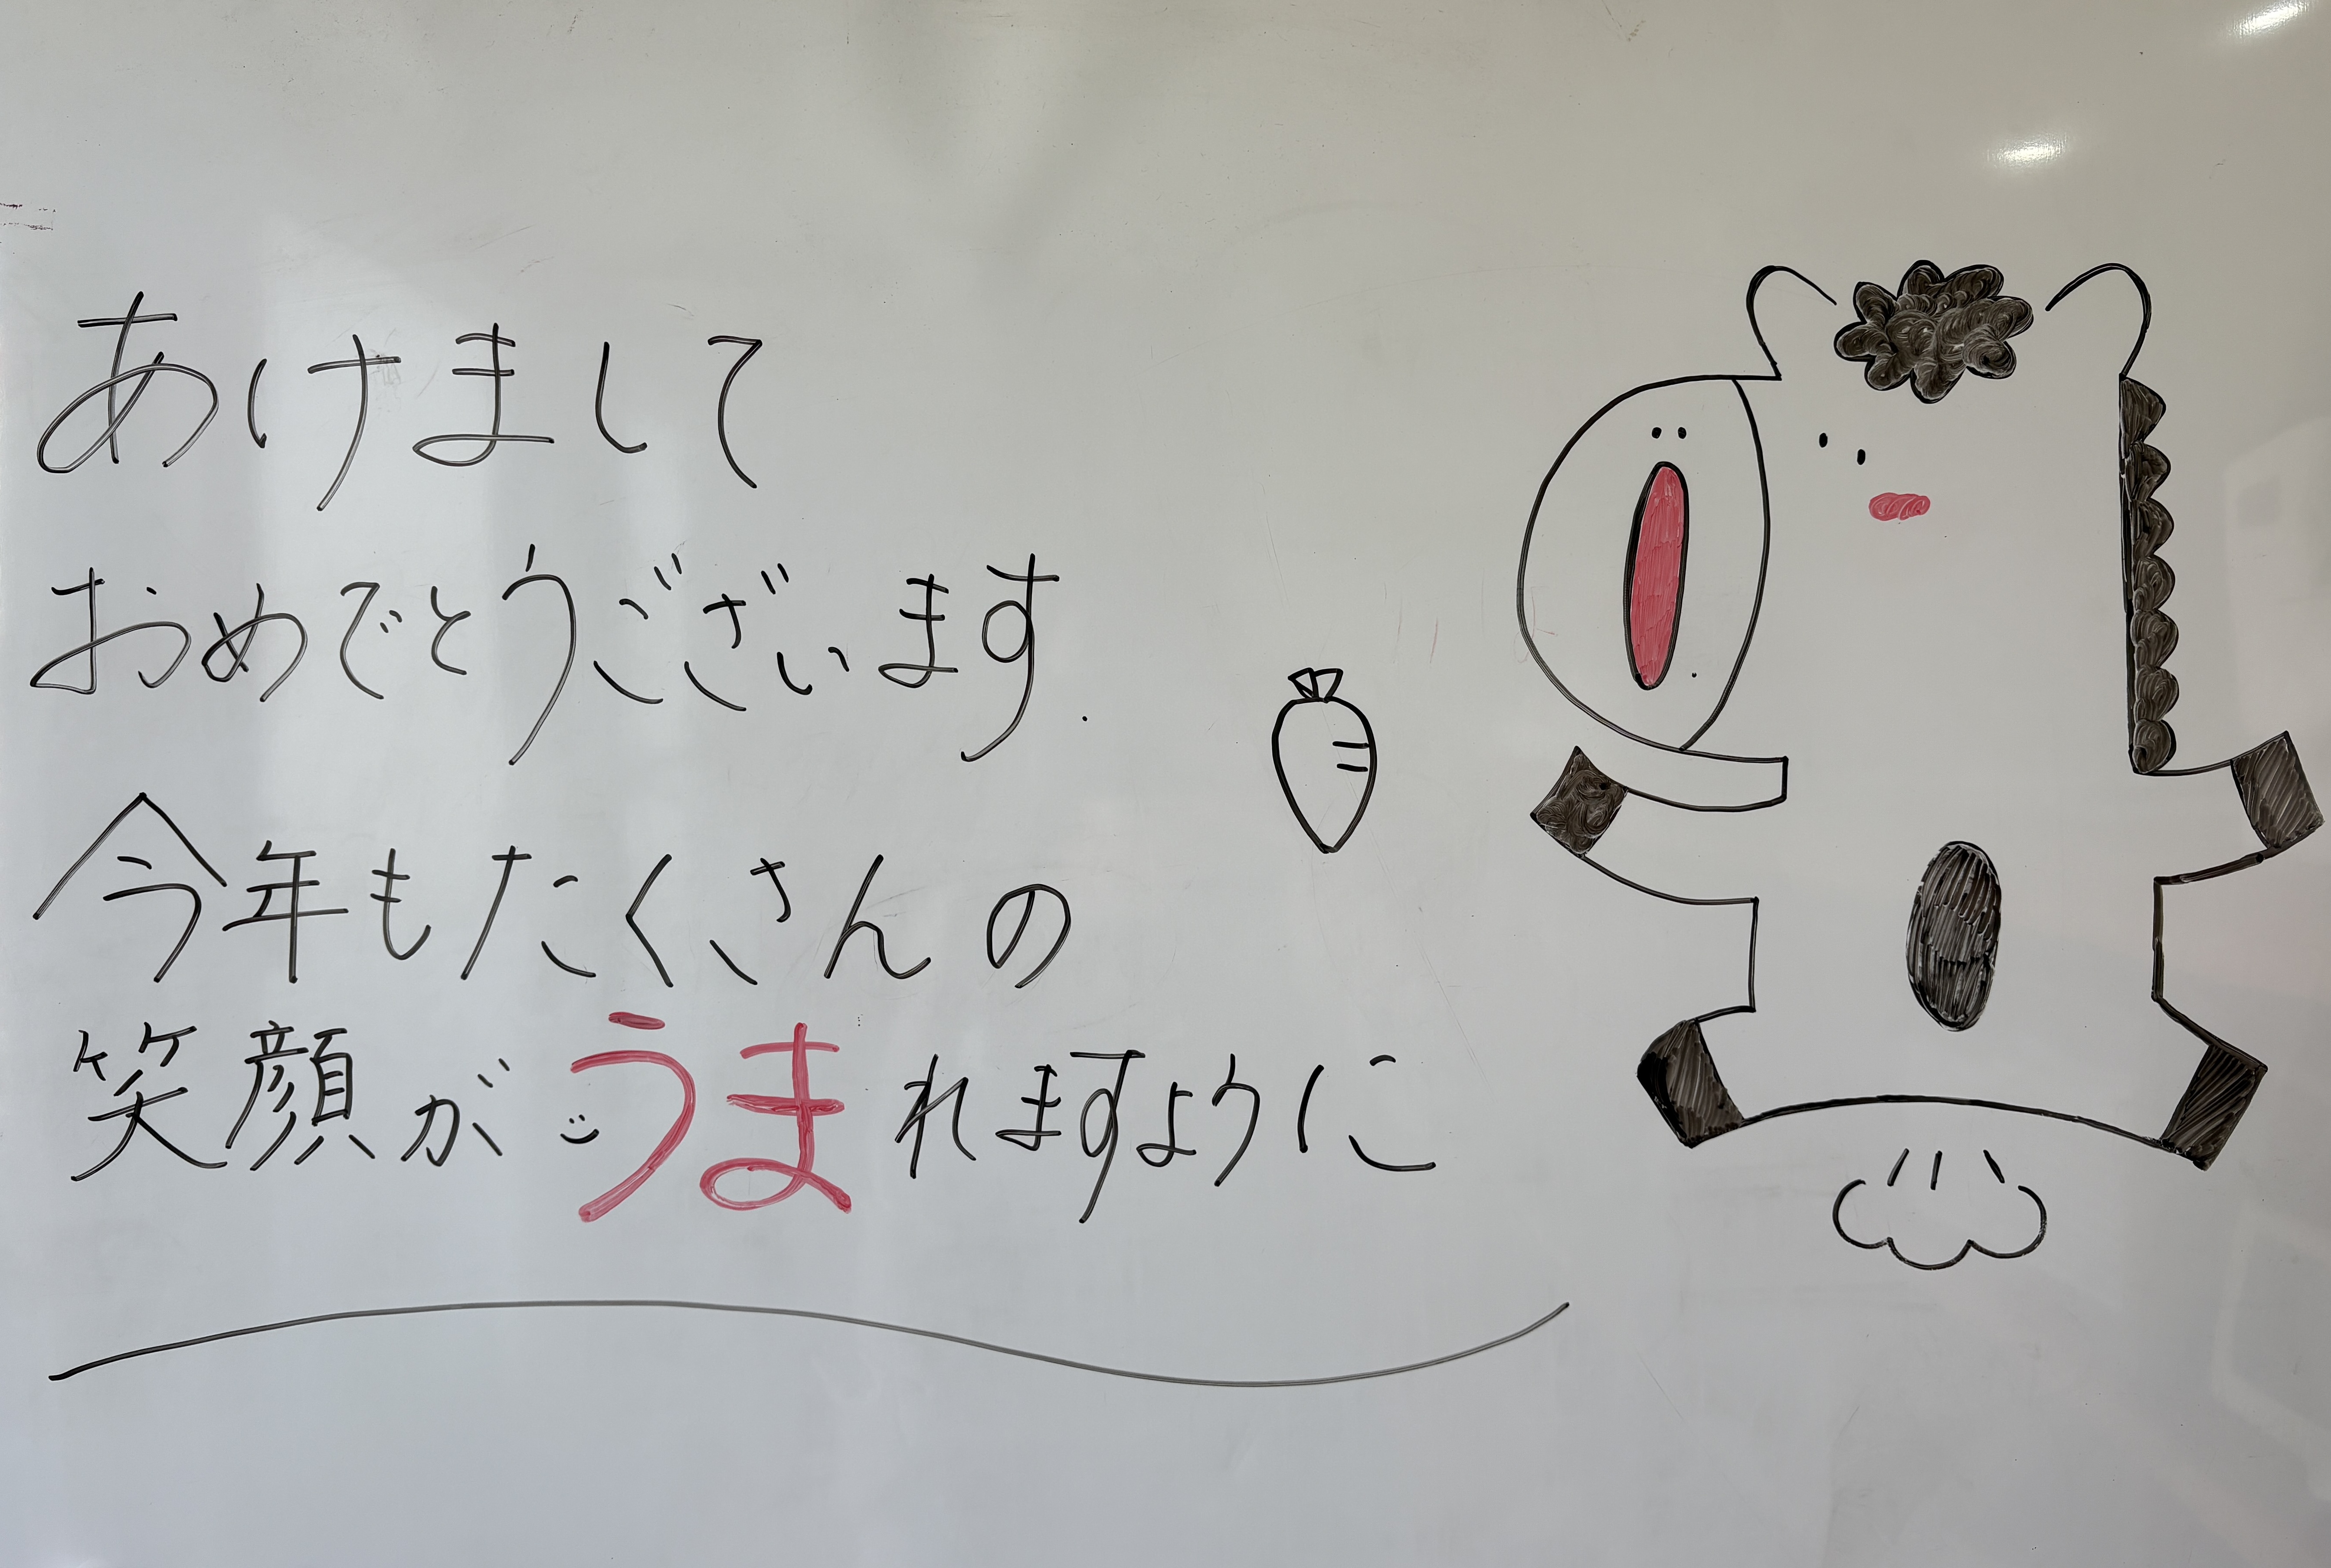 あけまして
おめでとうございます.
今年もたくさんの
笑顔がうまれますように